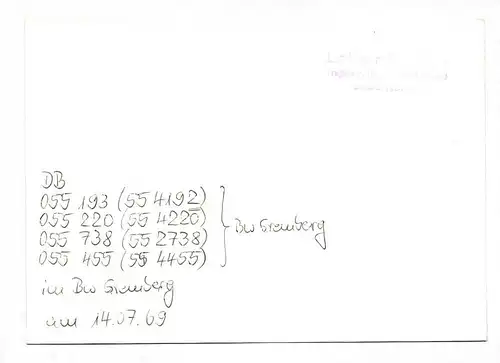 DB
055 193 (55 4192)
055 220 (55 4220)
055 738 (55 2738)
055 455 (55 4455)
} Bw Gremberg
im Bw Gremberg
am 14.07.69